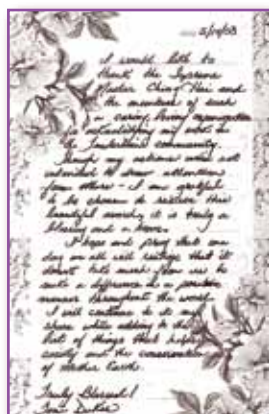 5/19/08
I would like to
thank the Supreme
Master Ching Hai and
the members of such
a caring, loving organization
for acknowledging my work in
the community.
Though my actions were not
intended to draw attention
from others - I am grateful
to be chosen to receive this
beautiful award, it is truly a
blessing and a honor.
I hope and pray that one
day we all will realize that it
doesn't take much from us to
make a difference in a positive
manner throughout the world.
I will continue to do my
share while adding to the
list of things that help
society and the conservation
of Mother Earth.
Truly Blessed!